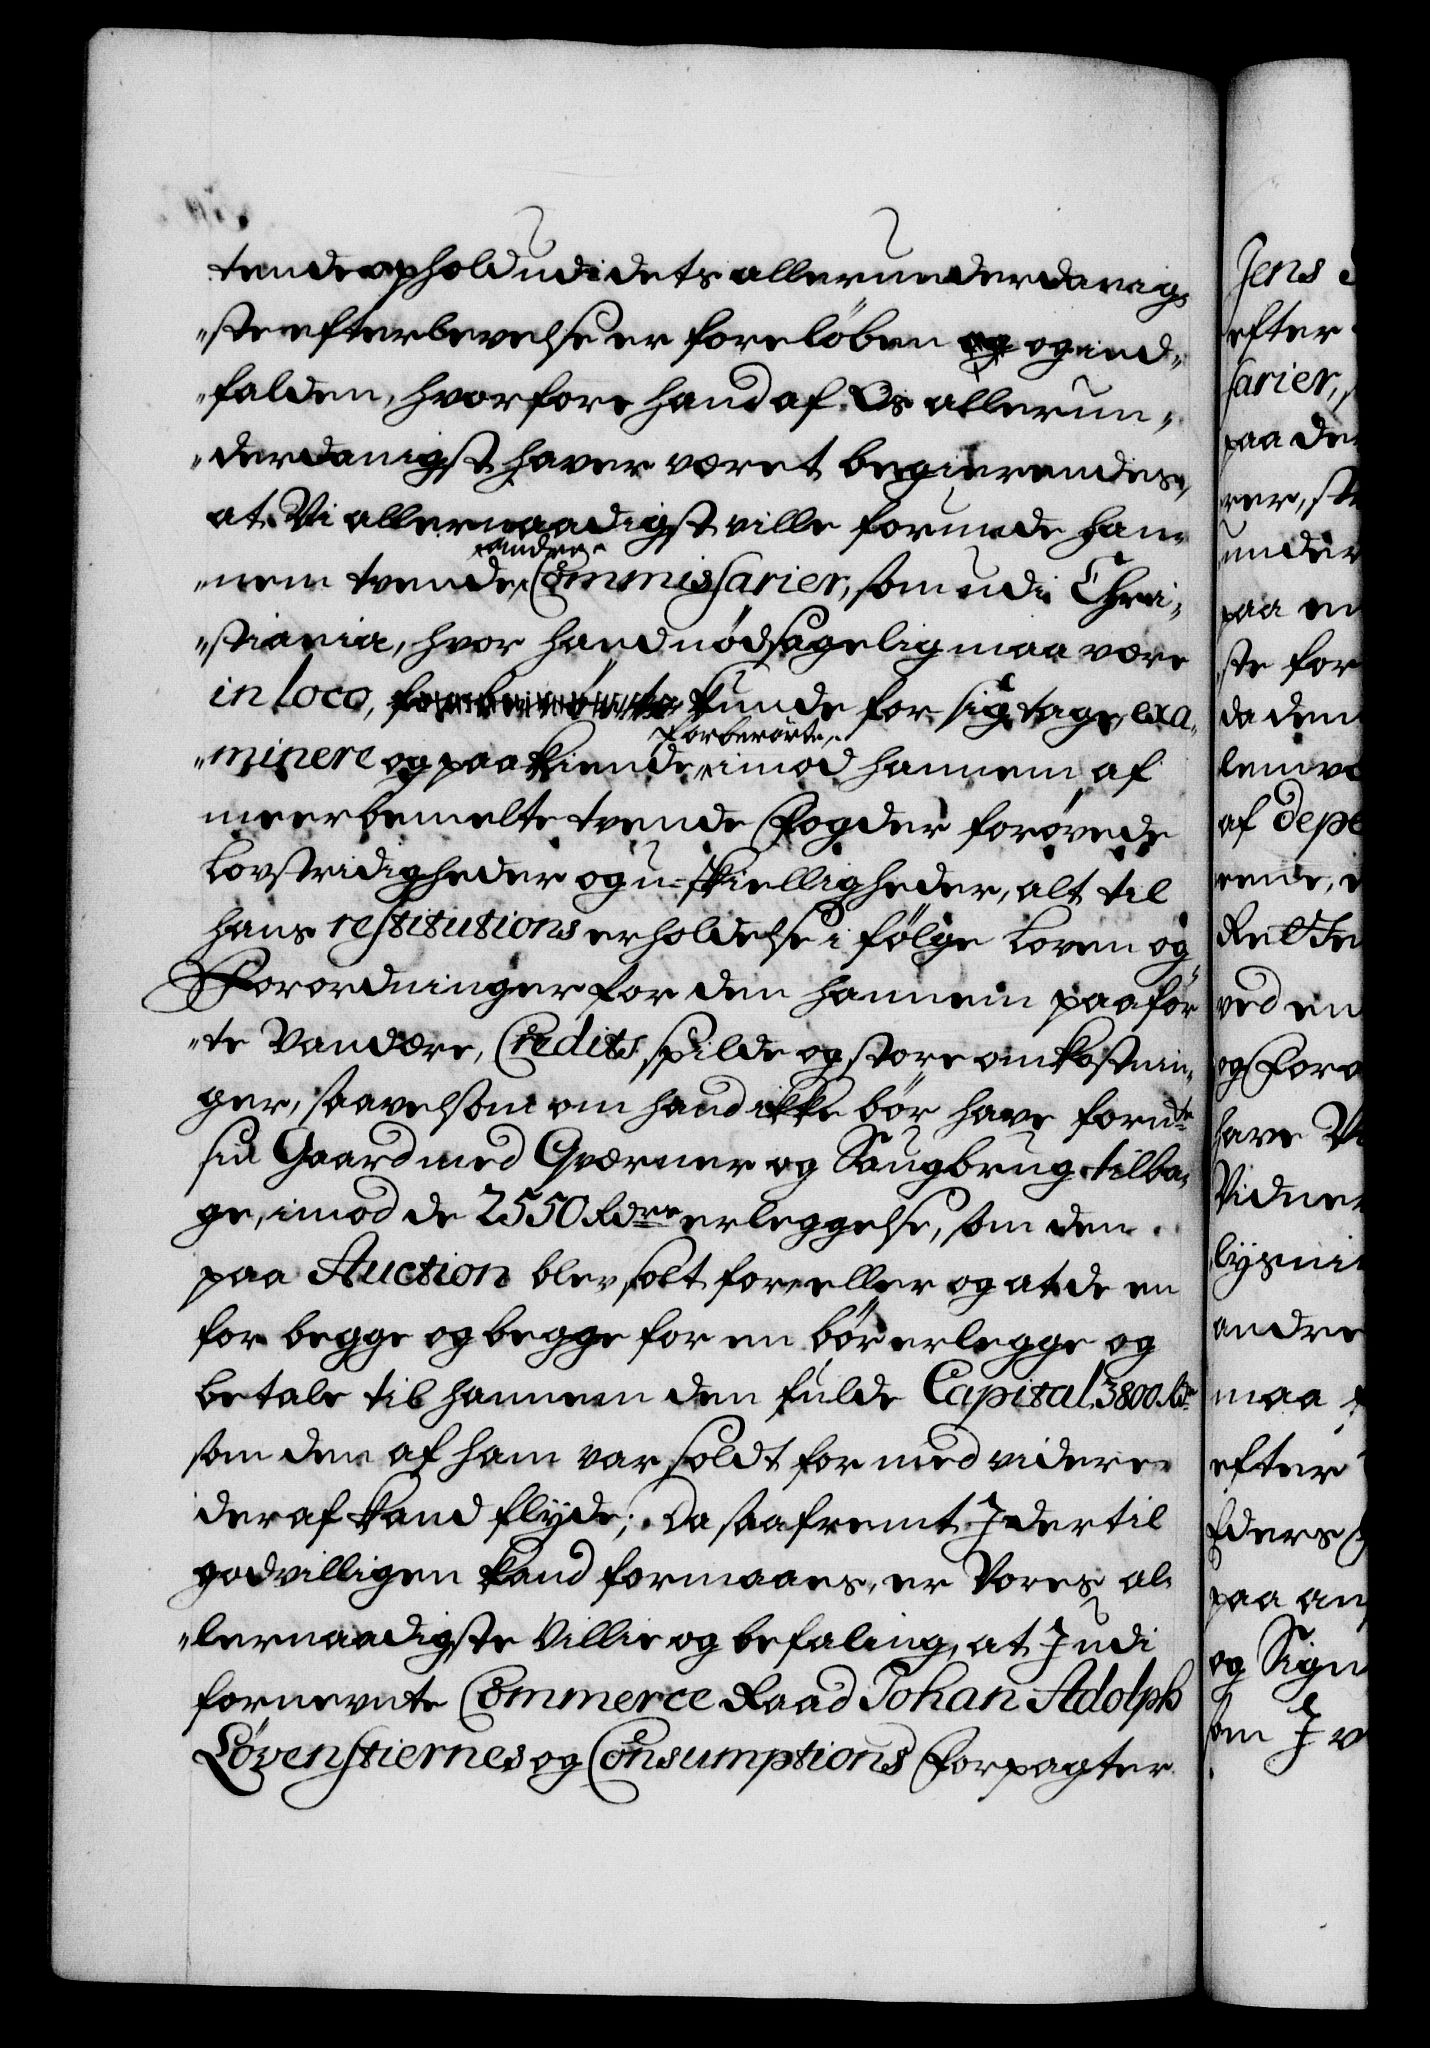 tende ophold udi dets allerunderdanig¬
„ste efterlevelse er foreløben og ind„
„falden, hvorfore hand af Os allerun„
„derdanigst haver været begierendes,
at Vi allernaadigst ville forunde han„
„nem tvende andre Commissarier, som udi Chri„
„stiania, hvor hand nødsagelig maa være
in loco, kunde for sig tage, exa„
„minere og paakiende forberørte imod hannem af
meerbemelte tvende Fogder forøvede
Lovstridigheder og u-skielligheder, alt til
hans restitutions erholdelse i følge Loven og
Forordninger for den hannem paafør
„te Vandære, Credits spilde og store omkostnin„
ger, saavelsom om hand ikke bør have fornte
sin Gaard med Qværner og Saugbrug tilba„
ge, imod de 2550 Rdrs erleggelse, som den
paa Auction blev solt for, eller og at de en
for begge og begge for en bør erlegge og
betale til hannem den fulde Capital 3800 Rdr
som den af ham var soldt for med videre
deraf kand flyde; Da saafremt I dertil
godvilligen kand formaaes, er Vores al„
„lernaadigste Villie og befaling, at I udi
fornevnte Commerce Raad Johan Adolph
Løvenstiernes og Consumptions Forpagter
Jens
efter
sarier,
paa de
rer, st
under
paa en
ste for
da dem
lemve
af depe
rende,
Rette
ved en
og Foro
have Vi
Vidner
lysni
andre
maa
efter
Eders
paa an
og Sign
som I v